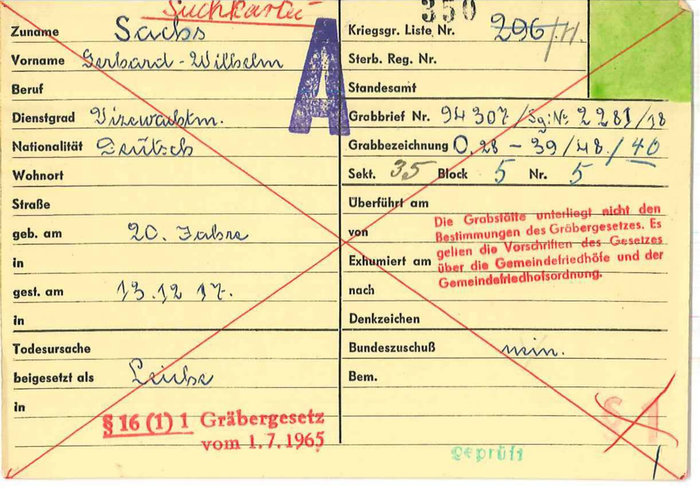 Suchkartei
350
A
Zuname Sachs
Vorname Gerhard-Wilhelm
Beruf
Dienstgrad Vizewachtm.
Nationalität Deutsch
Wohnort
Straße
geb. am 20. Jahre
in
gest. am 13.12 17.
in
Todesursache
beigesetzt als Leiche
in
§ 16 (1) 1 Gräbergesetz
vom 1.7.1965
Kriegsgr. Liste Nr. 296/11.
Sterb. Reg. Nr.
Standesamt
Grabbrief Nr. 94307/Sg: No 2281/38
Grabbezeichnung O. 28 - 39/48./40
Sekt. 35 Block 5 Nr. 5
Überführt am
von
Exhumiert am
nach
Denkzeichen
Bundeszuschuß nein.
Bem.
Die Grabstätte unterliegt nicht den
Bestimmungen des Gräbergesetzes. Es
gelten die Vorschriften des Gesetzes
über die Gemeindefriedhöfe und der
Gemeindefriedhofsordnung.
§ 1
geprüft